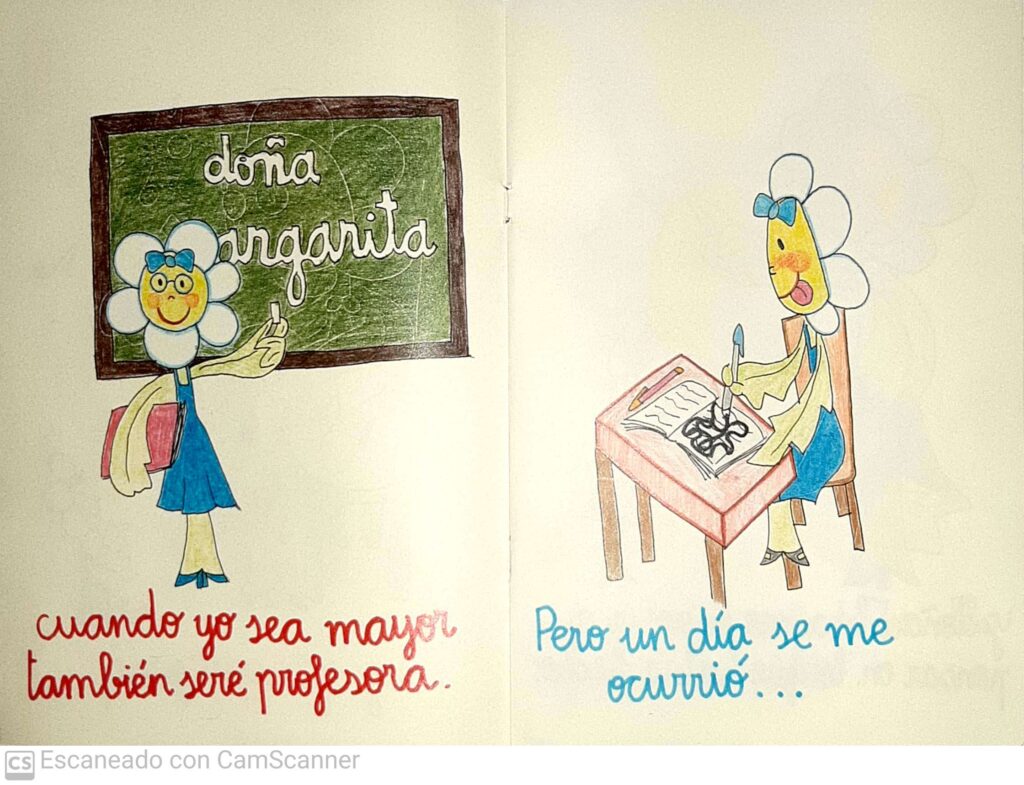 doña
margarita
cuando yo sea mayor
también seré profesora.
Pero un día se me
ocurrió...
CS Escaneado con CamScanner